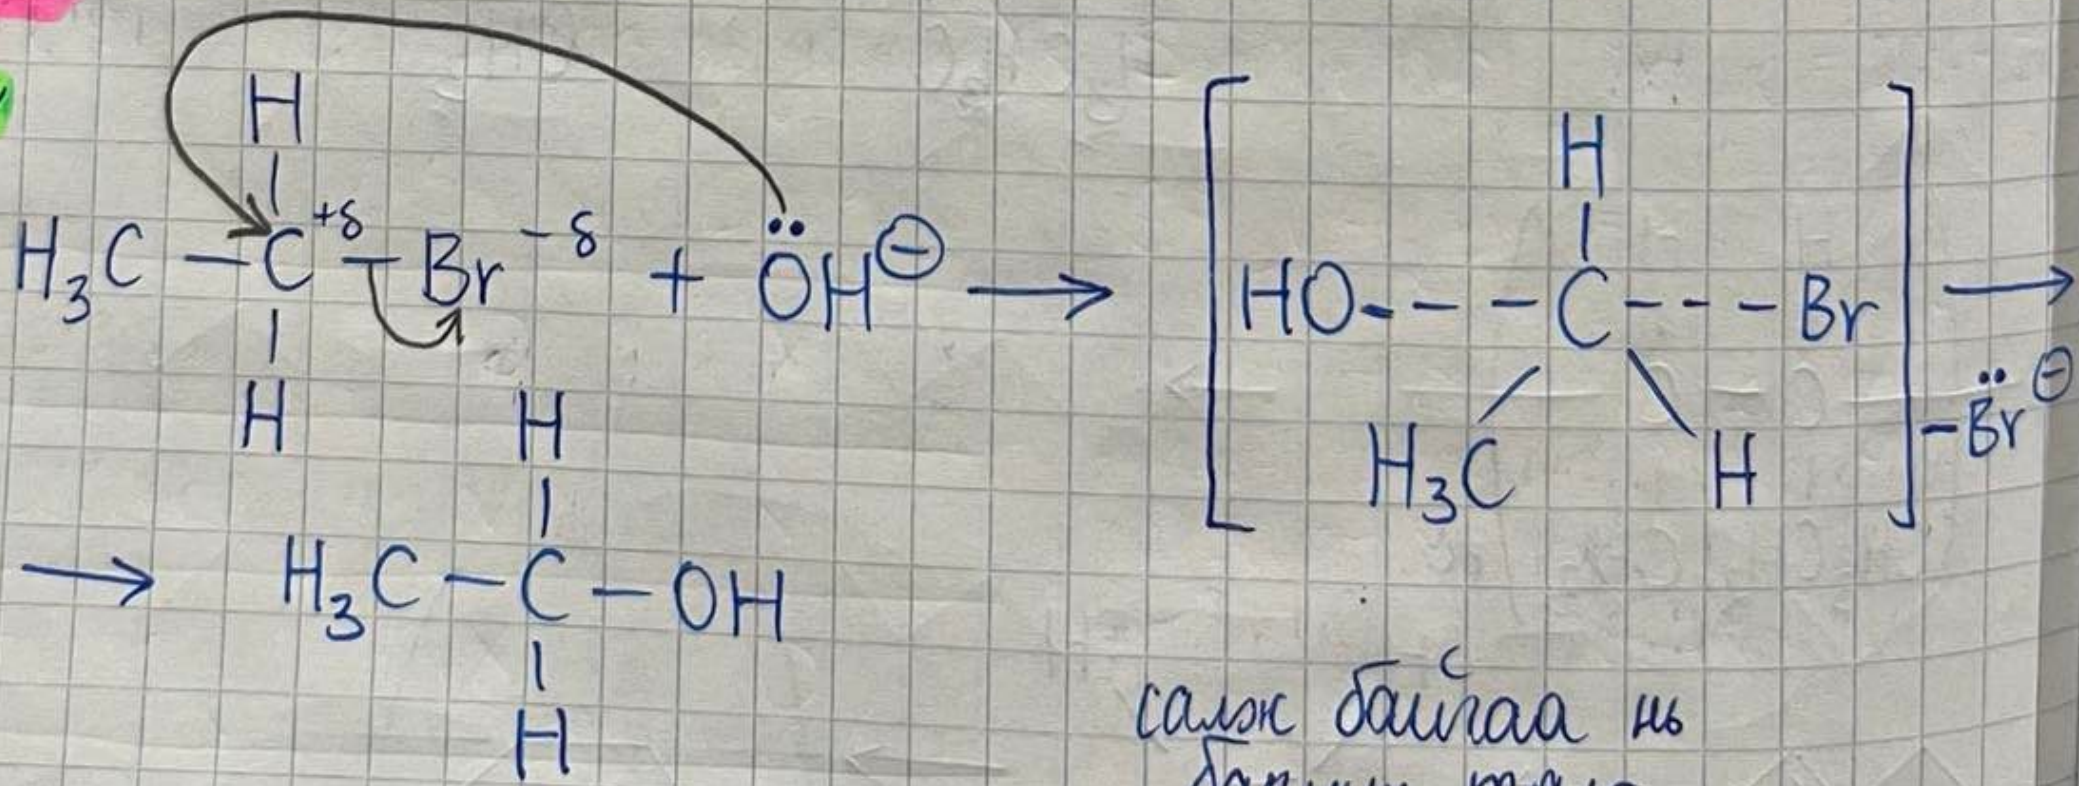 H
H₃C – C⁺ᵟ – Br⁻ᵟ + ÖH⊖ → [HO --- C --- Br] →
H
H
H₃C H
-B̈r⊖
H
→ H₃C – C – OH
H
салж байгаа нь